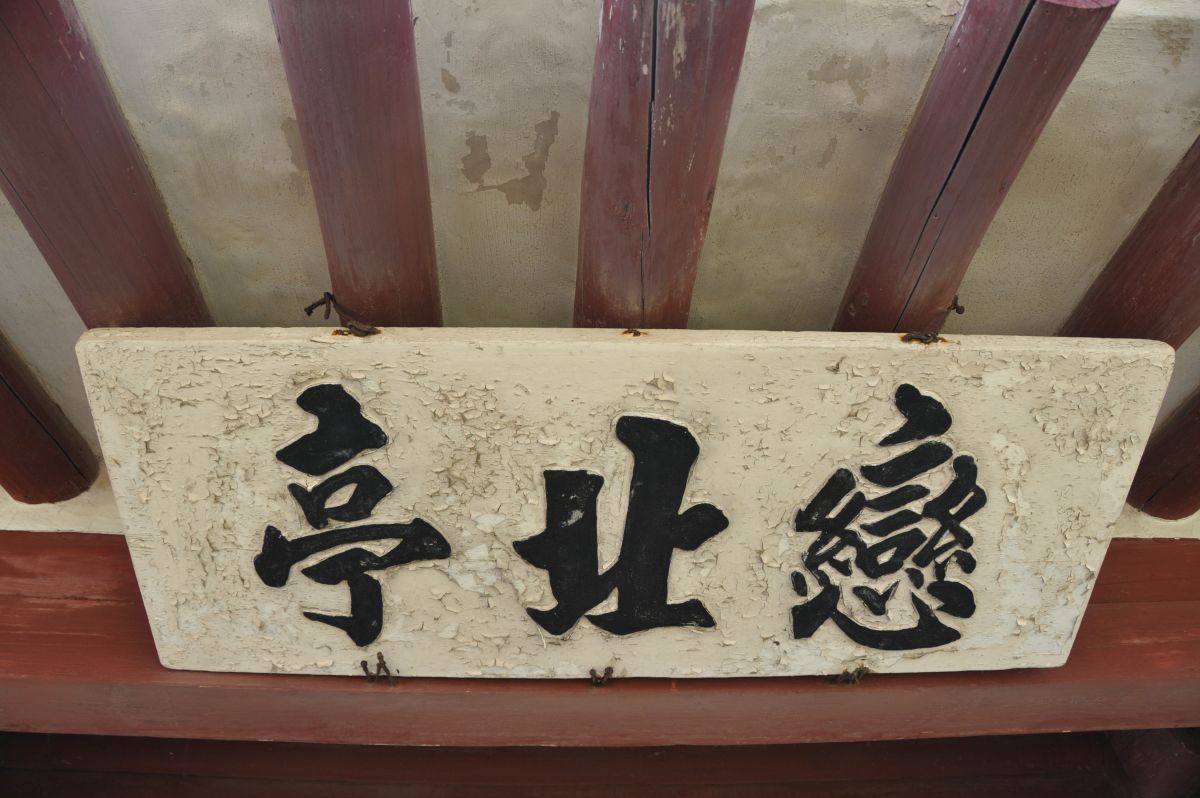 戀北亭